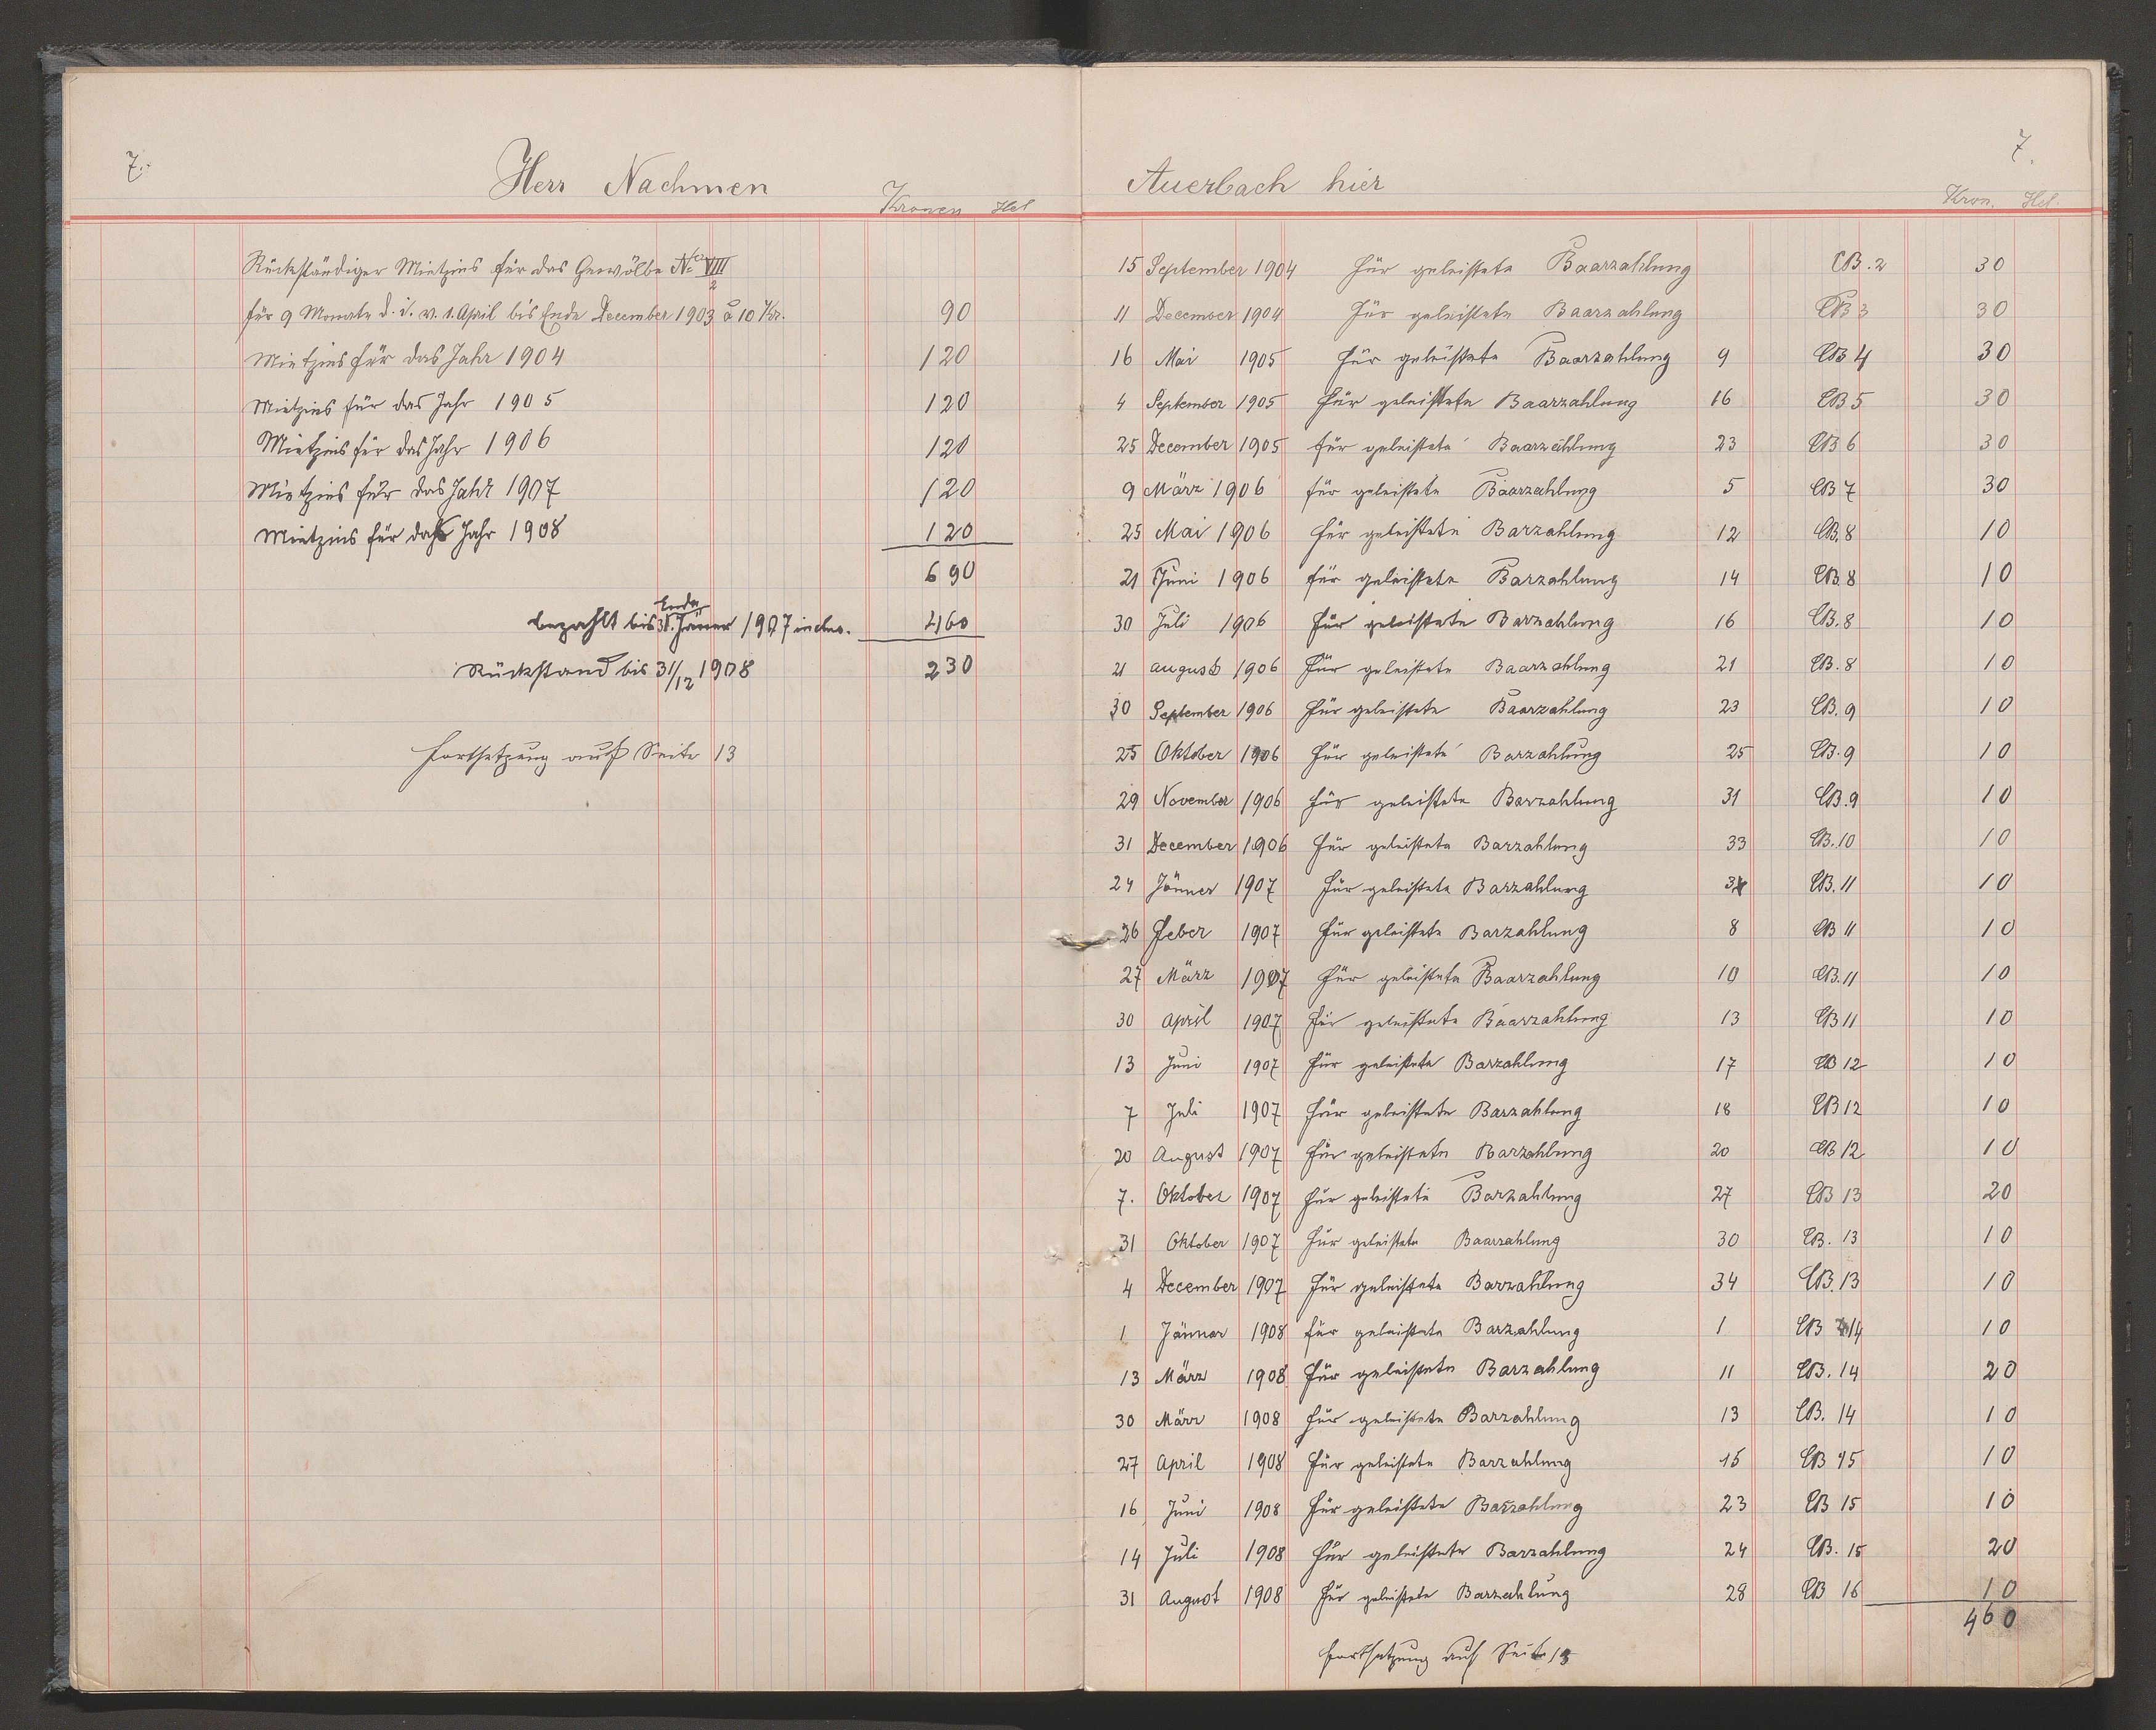 7.
Herr Nachmen
Kronen Hel
Rückständiger Mietzins für das Gewölbe No VIII/2
für 9 Monate d. i. v. 1. April bis Ende December 1903 à 10 Kr. 90
Mietzins für das Jahr 1904 120
Mietzins für das Jahr 1905 120
Mietzins für das Jahr 1906 120
Mietzins für das Jahr 1907 120
Mietzins für das Jahr 1908 120
690
bezahlt bis Ende Jänner 1907 inclus. 460
Rückstand bis 31/12 1908 230
Fortsetzung auf Seite 13
7.
Auerbach hier
Kron. Hel.
15 September 1904 Für geleistete Baarzahlung CB.2 30
11 December 1904 Für geleistete Baarzahlung CB 3 30
16 Mai 1905 Für geleistete Baarzahlung 9 CB 4 30
4 September 1905 Für geleistete Baarzahlung 16 CB 5 30
25 December 1905 für geleistete Baarzahlung 23 CB 6 30
9 März 1906 für geleistete Baarzahlung 5 CB 7 30
25 Mai 1906 für geleistete Barzahlung 12 CB.8 10
21 Juni 1906 für geleistete Barzahlung 14 CB.8 10
30 Juli 1906 Für geleistete Barzahlung 16 CB.8 10
21 august 1906 Für geleistete Baarzahlung 21 CB.8 10
30 September 1906 Für geleistete Baarzahlung 23 CB.9 10
25 Oktober 1906 Für geleistete Barzahlung 25 CB.9 10
29 November 1906 Für geleistete Barzahlung 31 CB.9 10
31 December 1906 Für geleistete Barzahlung 33 CB.10 10
24 Jänner 1907 Für geleistete Barzahlung CB.11 10
26 Feber 1907 Für geleistete Barzahlung 8 CB 11 10
27 März 1907 Für geleistete Baarzahlung 10 CB.11 10
30 April 1907 Für geleistete Baarzahlung 13 CB 11 10
13 Juni 1907 Für geleistete Barzahlung 17 CB 12 10
7 Juli 1907 Für geleistete Barzahlung 18 CB 12 10
20 August 1907 Für geleistete Barzahlung 20 CB 12 10
7. Oktober 1907 Für geleistete Barzahlung 27 CB 13 20
31 Oktober 1907 Für geleistete Baarzahlung 30 CB. 13 10
4 December 1907 Für geleistete Barzahlung 34 CB.13 10
1 Jännar 1908 für geleistete Barzahlung 1 CB 14 10
13 März 1908 Für geleistete Barzahlung 11 CB.14 20
30 März 1908 Für geleistete Barzahlung 13 CB. 14 10
27 April 1908 Für geleistete Barzahlung 15 CB 15 10
16 Juni 1908 Für geleistete Barzahlung 23 CB 15 10
14 Juli 1908 Für geleistete Barzahlung 24 CB. 15 20
31 August 1908 Für geleistete Barzahlung 28 CB 16 10
460
Fortsetzung auf Seite 13